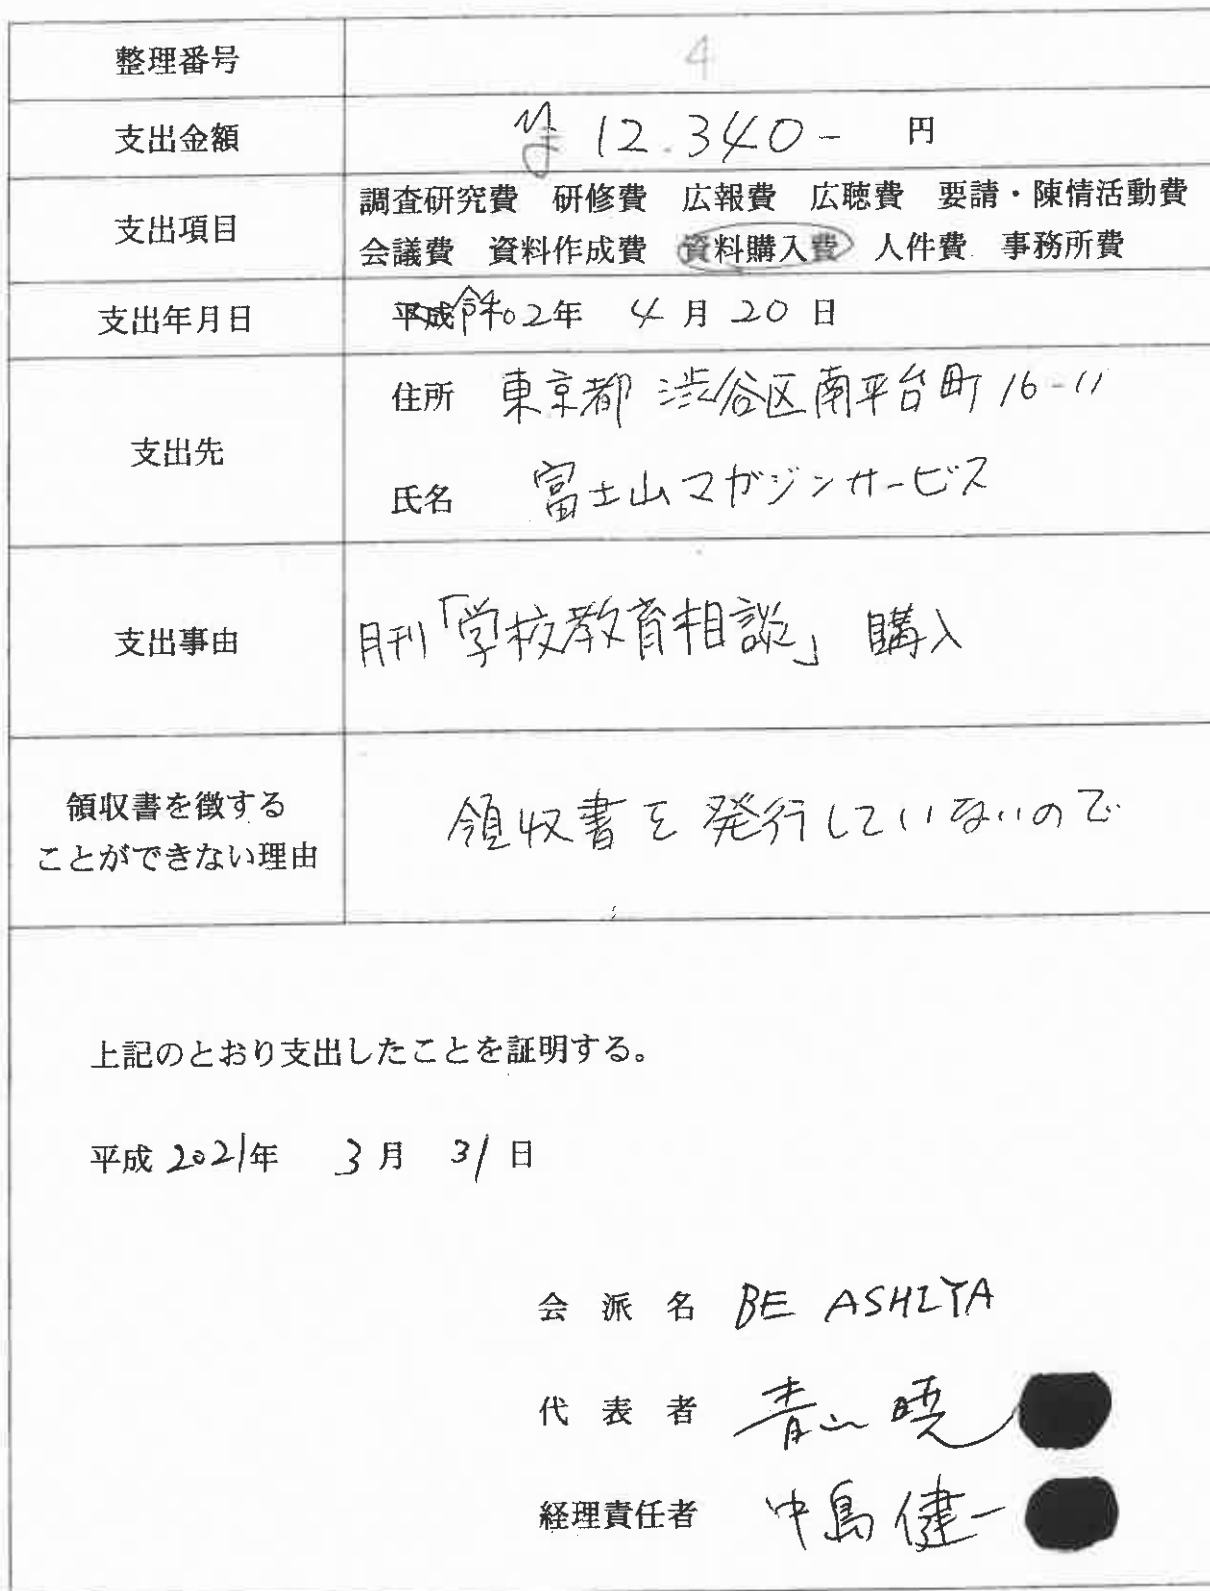 整理番号 4
支出金額 ¥ 12.340- 円
支出項目 調査研究費 研修費 広報費 広聴費 要請・陳情活動費
会議費 資料作成費 資料購入費 人件費 事務所費
支出年月日 平成令和02年 4月20日
支出先 住所 東京都渋谷区南平台町16-11
氏名 富士山マガジンサービス
支出事由 月刊「学校教育相談」購入
領収書を徴する
ことができない理由 領収書を発行していないので
上記のとおり支出したことを証明する。
平成2021年 3月 31日
会派名 BE ASHIYA
代表者 青山暁
経理責任者 中島健一